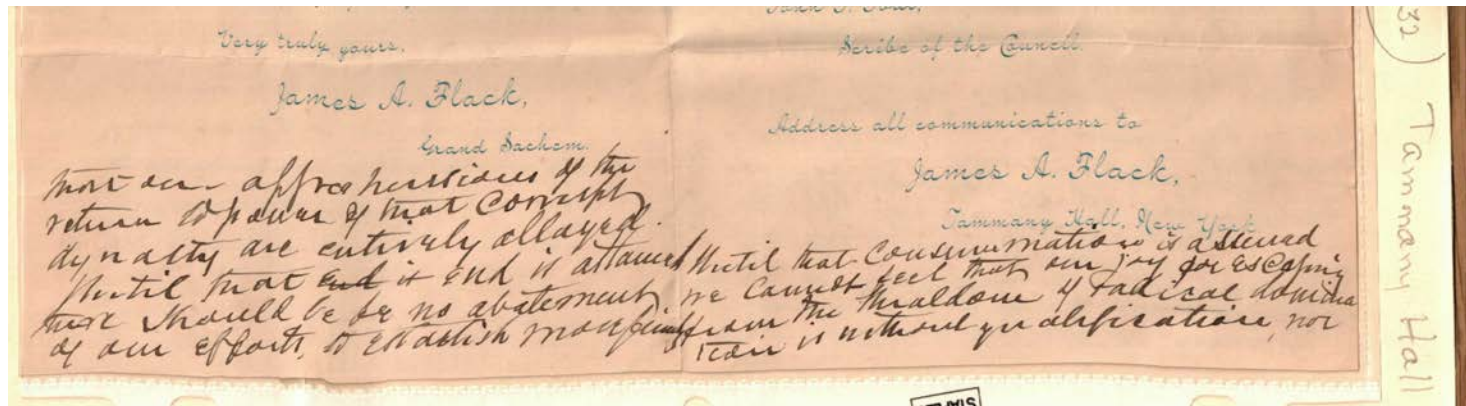 Very truly yours,
James A. Flack,
Grand Sachem.
that our apprehensions of the
return to power of that corrupt
dynasty are entirely allayed.
Until that end it end is attained
there should be be no abatement
of our efforts, to establish more firmly
Scribe of the Council.
Address all communications to
James A. Flack,
Tammany Hall, New York
Until that consummation is assured
we cannot feel that our joy for escaping
from the thraldom of radical domina
tion is without qualification, nor
32)
Tammany Hall